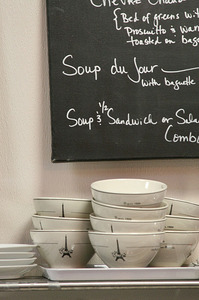 Chevre
{Bed of greens with
Prosciutto is warm
toasted on bag
Soup du Jour
with baguette
Soup & 1/2 Sandwich or Sala
(Combo